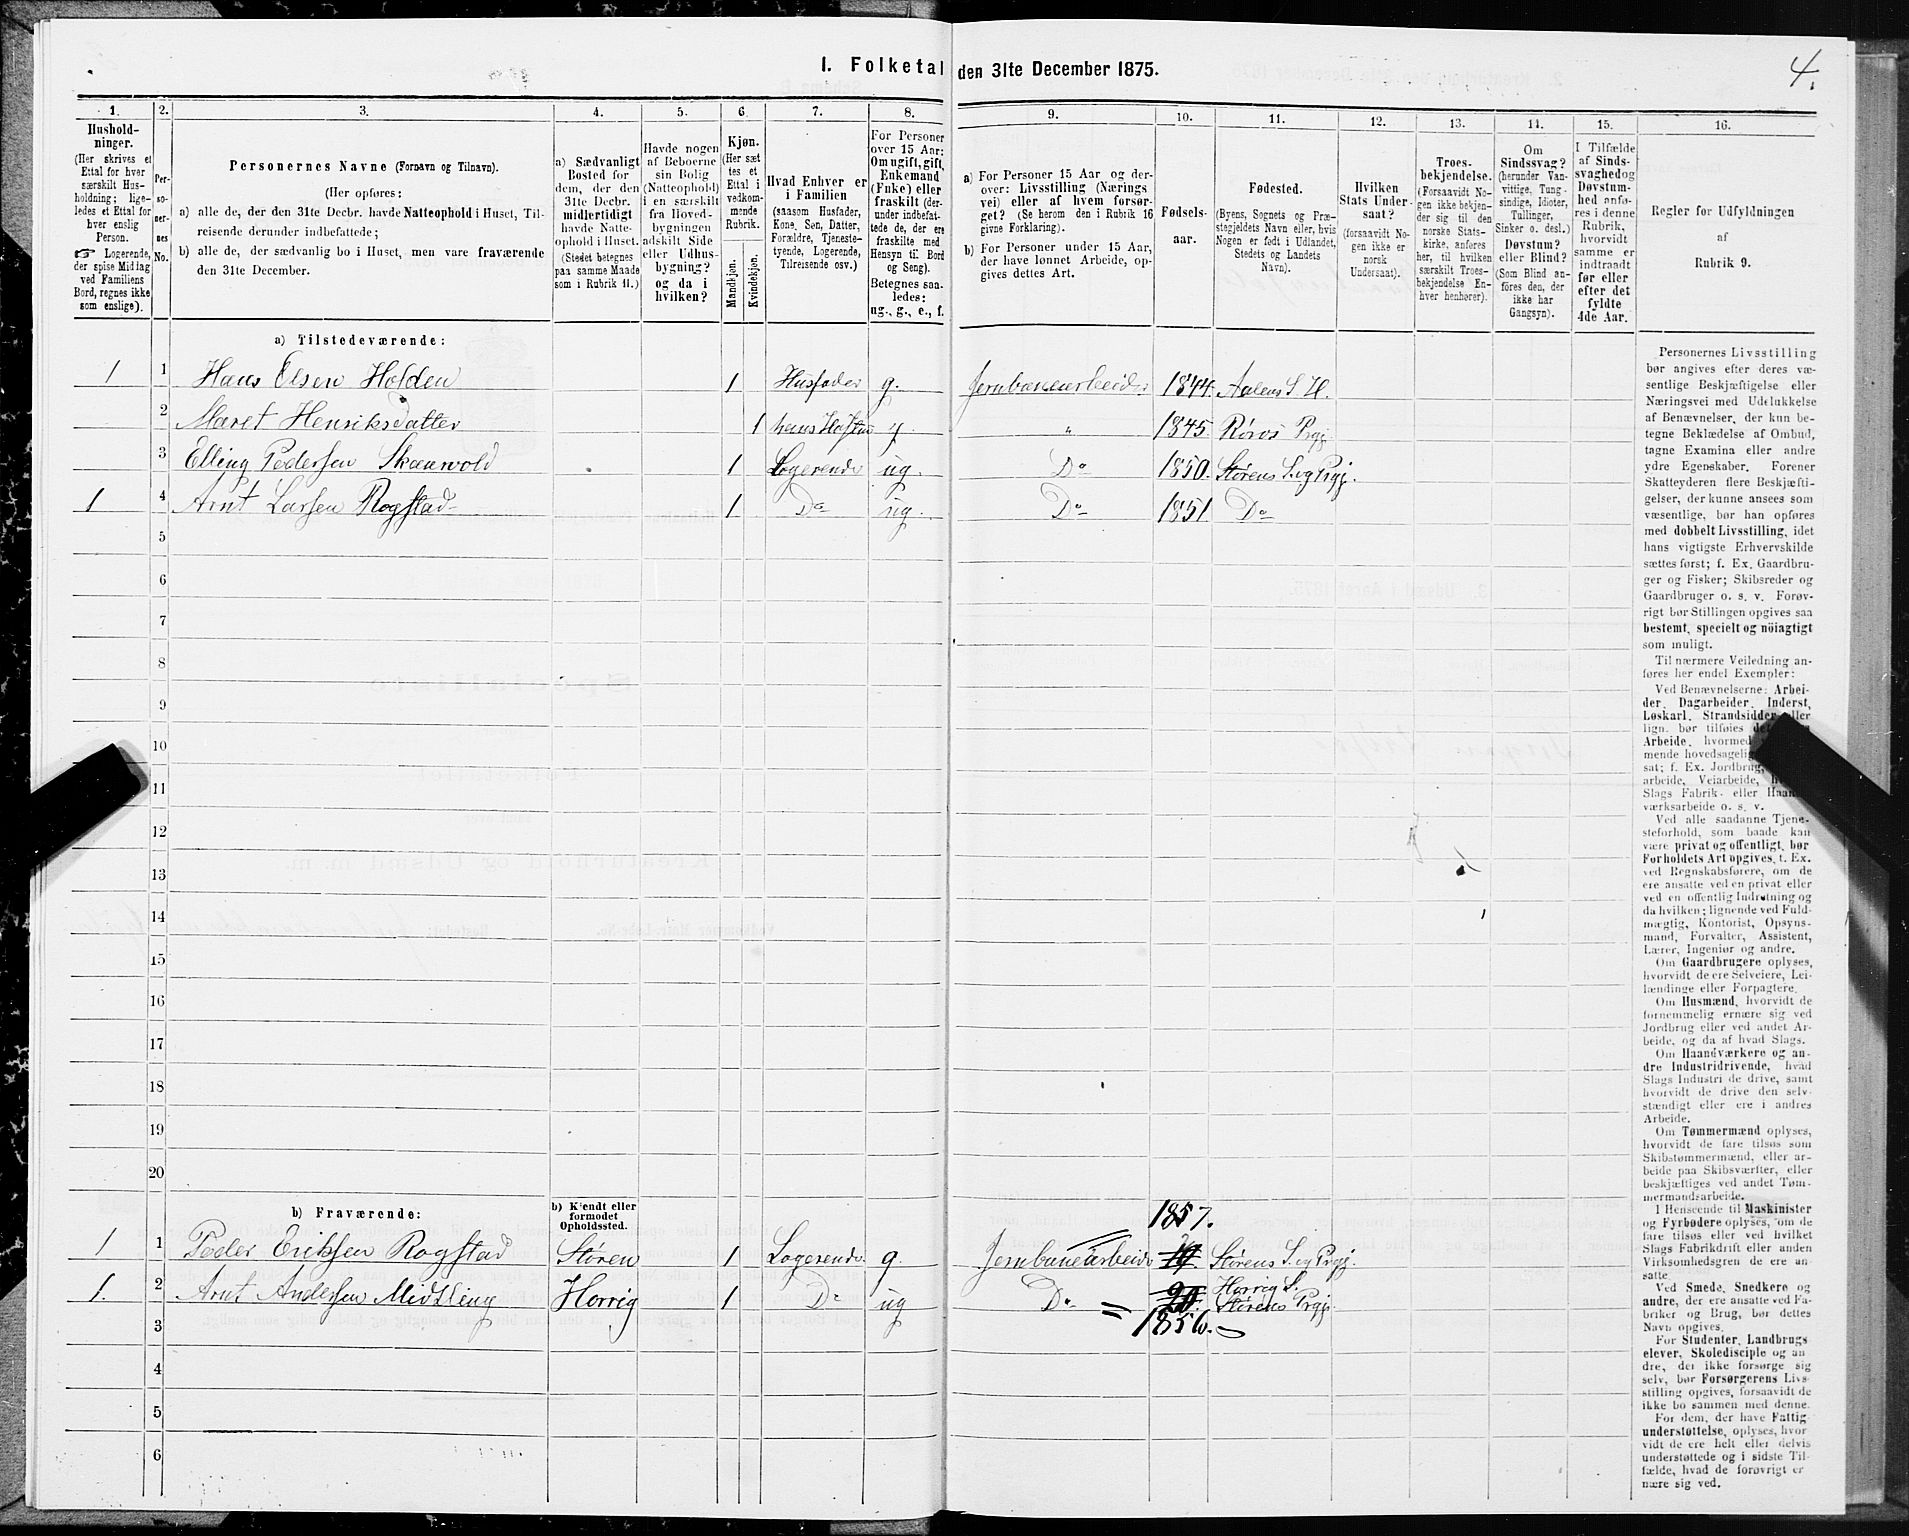 1. Folketal den 31te December 1875.
4.
1. 2. 3. 4. 5. 6. 7. 8. 9. 10. 11. 12. 13. 14. 15. 16.
Hushold-
ninger.
(Her skrives et
Ettal for hver
særskilt Hus-
holdning; lige-
ledes et Ettal for
hver enslig
Person.
☞ Logerende,
der spise Middag
ved Familiens
Bord, regnes ikke
som enslige).
Per-
so-
ner-
nes
No.
Personernes Navne (Fornavn og Tilnavn).
(Her opføres:
a) alle de, der den 31te Decbr. havde Natteophold i Huset, Til-
reisende derunder indbefattede;
b) alle de, der sædvanlig bo i Huset, men vare fraværende
den 31te December.
a) Sædvanligt
Bosted for
dem, der den
31te Decbr.
midlertidigt
havde Natte-
ophold i Huset.
(Stedet betegnes
paa samme Maade
som i Rubrik 11.)
Havde nogen
af Beboerne
sin Bolig
(Natteophold)
i en særskilt
fra Hoved-
bygningen
adskilt Side
eller Udhus-
bygning?
og da i
hvilken?
Kjøn.
(Her sæt
tes et
Ettal i
vedkom-
mende
Rubrik.
Mandkjøn.
Kvindekjøn.
Hvad Enhver er
i Familien
(saasom Husfader,
Kone, Søn, Datter,
Forældre, Tjeneste-
tyende, Logerende,
Tilreisende osv.)
For Personer
over 15 Aar:
Om ugift, gift,
Enkemand
(Enke) eller
fraskilt (der-
under indbefat-
tede de, der ere
fraskilte med
Hensyn til Bord
og Seng).
Betegnes saa-
ledes:
ug., g., e., f.
a) For Personer 15 Aar og der-
over: Livsstilling (Nærings
vei) eller af hvem forsør-
get? (Se herom den i Rubrik 16
givne Forklaring).
b) For Personer under 15 Aar,
der have lønnet Arbeide, op-
gives dettes Art.
Fødsels-
aar.
Fødested.
(Byens, Sognets og Præ-
stegjeldets Navn eller, hvis
Nogen er født i Udlandet,
Stedets og Landets
Navn).
Hvilken
Stats Under-
saat?
(forsaavidt No-
gen ikke er
norsk
Undersaat).
Troes-
bekjendelse.
(Forsaavidt No-
gen ikke bekjen-
der sig til den
norske Stats-
kirke, anføres
her, til hvilken
særskilt Troes-
bekjendelse En-
hver henhører).
Om
Sindssvag?
(herunder Van-
vittige, Tung-
sindige, Idioter,
Tullinger,
Sinker o. desl.)
Døvstum?
eller Blind?
(Som Blind an-
føres den, der
ikke har
Gangsyn).
I Tilfælde
af Sinds-
svaghed og
Døvstum-
hed anfø-
res i denne
Rubrik,
hvorvidt
samme er
indtraadt
før eller
efter det
fyldte
4de Aar.
Regler for Udfyldningen
af
Rubrik 9.
a) Tilstedeværende:
1 1 Hans Olsen Holden 1 Husfader g. Jernbanearbeider 1844. Aalens S. H.
2 Maret Henriksdatter 1 hans Hustru g. " 1845. Røros Prgj.
3 Elling Pedersen Skanvold 1 Logerende ug. Do 1850. Størens S. og Prgj.
1 4 Arnt Larsen Rogstad 1 Do ug. Do 1851 Do
5
6
7
8
9
10
11
12
13
14
15
16
17
18
19
20
b) Fraværende:
b) Kjendt eller
formodet
Opholdssted.
1857.
1 1 Peder Eriksen Rogstad Støren 1 Logerende. g. Jernbanearbeide Størens S. og Prgj.
1. 2 Arnt Andersen Midtling Horrig 1 Do ug Do 20. Horrig S. Størens Prgj.
3 1856.
4
5
6
Personernes Livsstilling
bør angives efter deres væ-
sentlige Beskjæftigelse eller
Næringsvei med Udelukkelse
af Benævnelser, der kun be-
tegne Beklædelse af Ombud,
tagne Examina eller andre
ydre Egenskaber. Forener
Skatteyderen flere Beskjæfti-
gelser, der kunne ansees som
væsentlige, bør han opføres
med dobbelt Livsstilling, idet
hans vigtigste Erhvervskilde
sættes først; f. Ex. Gaardbru-
ger og Fisker; Skibsreder og
Gaardbruger o. s. v. Forøv-
rigt bør Stillingen opgives saa
bestemt, specielt og nöiagtigt
som muligt.
Til nærmere Veiledning an-
føres her endel Exempler:
Ved Benævnelserne: Arbei-
der, Dagarbeider, Inderst,
Løskarl, Strandsidder eller
lign. bør tilføies
Arbeide, hvormed
mende hovedsagelig
sat; f. Ex. Jordbrug,
arbeide, Veiarbeide,
Slags Fabrik- eller Haand-
værksarbeide o. s. v.
Ved alle saadanne Tjene-
steforhold, som baade kan
være privat og offentligt, bør
Forholdets Art opgives, t. Ex.
ved Regnskabsførere, om de
ere ansatte ved en privat eller
ved en offentlig Indretning og
da hvilken; lignende ved Fuld-
mægtig, Kontorist, Opsyns-
mand, Forvalter, Assistent,
Lærer, Ingeniør og andre.
Om Gaardbrugere oplyses,
hvorvidt de ere Selveiere, Lei-
lændinge eller Forpagtere.
Om Husmænd, hvorvidt de
fornemmelig ernære sig ved
Jordbrug eller ved andet Ar-
beide, og da af hvad Slags.
Om Haandværkere og an-
dre Industridrivende, hvad
Slags Industri de drive, samt
hvorvidt de drive den selv-
stændigt eller ere i andres
Arbeide.
Om Tømmermænd oplyses,
hvorvidt de fare tilsøs som
Skibstømmermænd, eller ar-
beide paa Skibsværfter, eller
beskjæftiges ved andet Tøm-
mermandsarbeide.
I Henseende til Maskinister
og Fyrbødere oplyses, om de
fare tilsøs eller ved hvilket
Slags Fabrikdrift eller anden
Virksomhedsgren de ere an-
satte.
Ved Smede, Snedkere og
andre, der ere ansatte ved Fa-
briker og Brug, bør dettes
Navn opgives.
For Studenter, Landbrugs
elever, Skoledisciple og an
dre, der ikke forsørge sig
selv, bør Forsørgerens Livs-
stilling opgives, forsaavidt de
ikke bo sammen med denne.
For dem, der have Fattig-
understøttelse, oplyses, hvor
vidt de ere helt eller delvis
understøttede og i sidste Til-
fælde, hvad de forøvrigt er
nære sig ved.